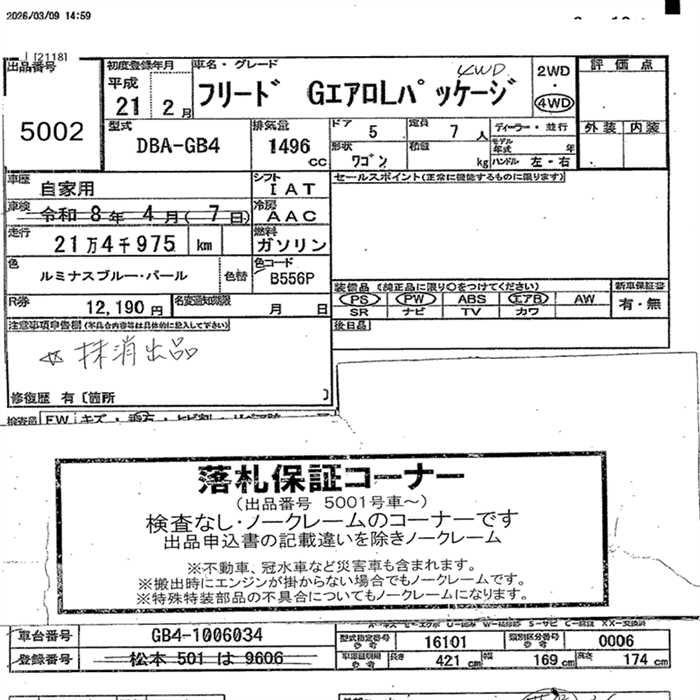 2026/03/09 14:59
[2118]
出品番号
5002
初度登録年月
平成
21 2月
車名・グレード
フリード GエアロLパッケージ
4WD
2WD
・
4WD
評価点
外装 内装
型式
DBA-GB4
排気量
1496
cc
ドア 5
定員 7人
ディーラー・並行
モデル年式 年
形状 ワゴン
積載 kg
ハンドル 左・右
車歴 自家用
シフト IAT
セールスポイント(正常に機能するものに限ります)
車検 令和 8年 4月( 7日)
冷房 AAC
走行 21万4千975 km
燃料 ガソリン
色 ルミナスブルー・パール
色替
色コード B556P
装備品(純正品に限り○をつけてください)
新車保証書
PS PW ABS エアB AW
有・無
SR ナビ TV カワ
R券 12,190円
名変通知期限 月 日
後日品
注意事項申告欄(不具合内容等は具体的に記入して下さい)
抹消出品
修復歴 有〔箇所 〕
落札保証コーナー
(出品番号 5001号車~)
検査なし・ノークレームのコーナーです
出品申込書の記載違いを除きノークレーム
※不動車、冠水車など災害車も含まれます。
※搬出時にエンジンが掛からない場合でもノークレームです。
※特殊特装部品の不具合についてもノークレームになります。
車台番号 GB4-1006034
型式指定番号 参考 16101
類別区分番号 参考 0006
登録番号 松本 501 は 9606
車認証明期 参考 長さ 421cm 幅 169cm 高さ 174cm